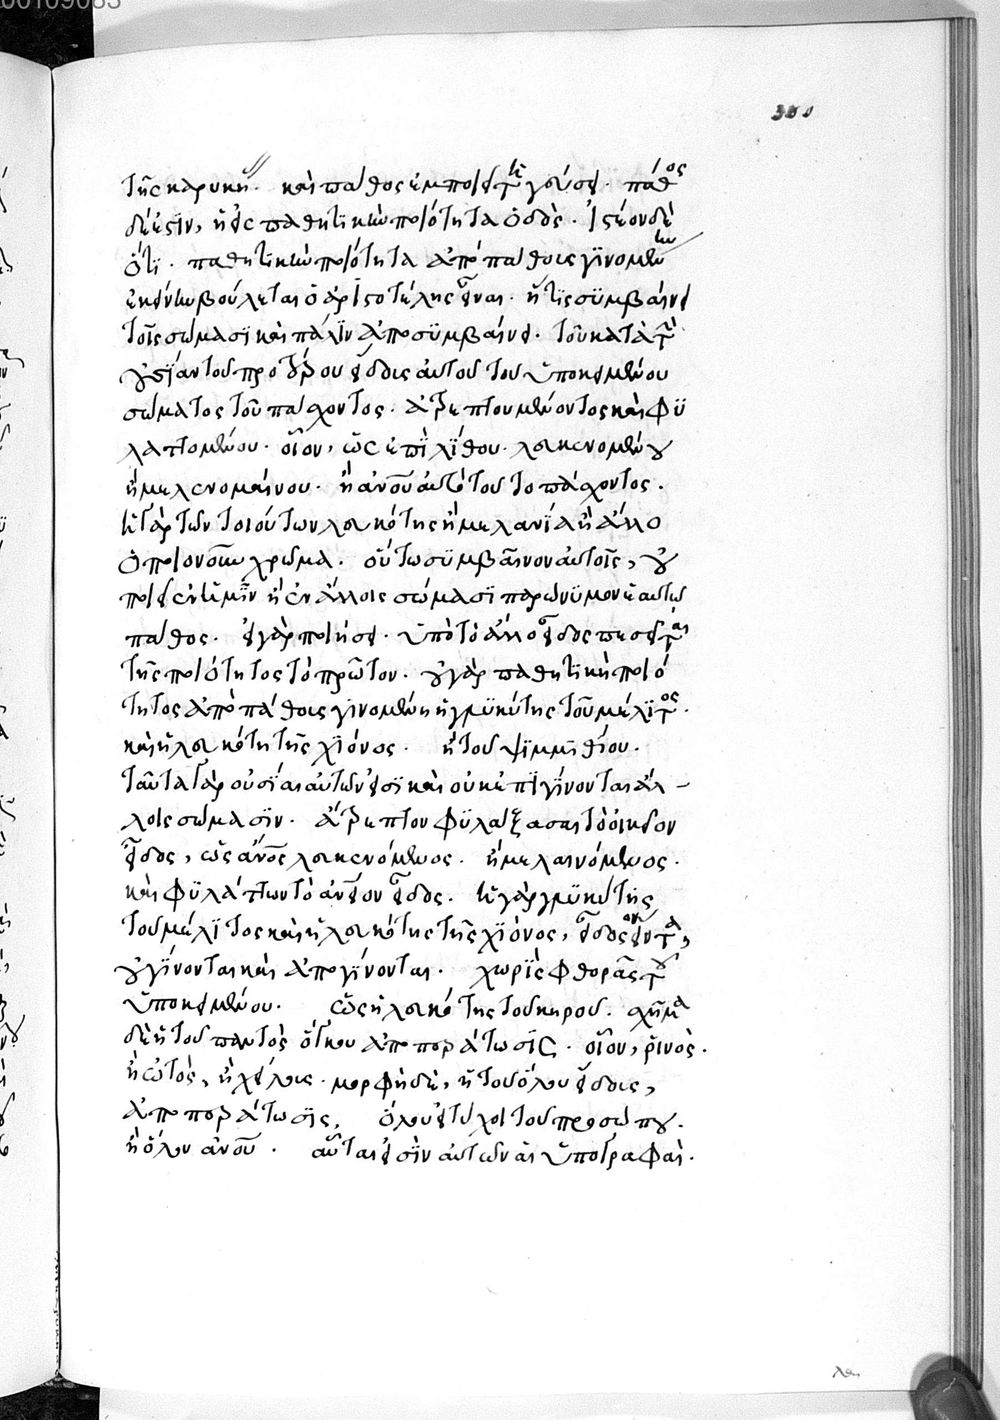 τῆς καρυκη. καὶ πάθος ἐμποιεῖ τῇ γεύσει. πάθος
δέ ἐστιν, ἡ εἰς παθητικὴν ποιότητα ὁδός. ἰστέον δὲ
ὅτι. παθητικὴν ποιότητα ἀπὸ πάθους γινομένην
ἐκείνην βούλεται ὁ ἀριστοτέλης εἶναι. ἥτις συμβαίνει
τοῖς σώμασι καὶ πάλιν ἀποσυμβαίνει. τοῦ κατὰ τὴν
οὐσίαν τοῦ προτέρου εἴδους αὐτοῦ τοῦ ὑποκειμένου
σώματος τοῦ πάσχοντος. ἀτρέπτου μένοντος καὶ φυ
λαττομένου. οἷον, ὡς ἐπὶ λίθου. λευκενομένου
ἢ μελενομαίνου. ἢ ἀνοῦ αὐτὸ τοῦτο πάσχοντος.
ἡ γὰρ τῶν τοιούτων λευκότης ἢ μελανία ἢ ἄλλο
ὁποιονοῦν χρῶμα. οὕτω συμβαῖνον αὐτοῖς, οὐ
ποιεῖ ἐν ἡμῖν ἢ ἐν ἄλλοις σώμασι παρωνύμον ἑαυτῶ
πάθος. εἰ γὰρ ποιήσει. ὑπὸ τὸ ἄλλο εἶδος πεσεῖται
τῆς ποιότητος τὸ πρῶτον. οὐ γὰρ παθητικὴ ποιό
τητος ἀπὸ πάθους γινομένη ἡ γλυκύτης τοῦ μέλιτος.
καὶ ἡ λευκότη τῆς χιόνος. ἢ τοῦ ψιμμιθίου.
ταῦτα γὰρ οὐσίαι αὐτῶν εἰσὶ καὶ οὐκ ἐπιγίνονται ἀλ-
λοις σώμασιν. ἄτρεπτον φυλάξασαι τὸ οἰκεῖον
εἶδος, ὡς ἄνος λευκενόμενος. ἢ μελαινόμενος.
καὶ φυλάττων τὸ ἀνειον εἶδος. ἡ γὰρ γλυκύτης
τοῦ μέλιτος καὶ ἡ λευκότης τῆς χιόνος, εἶδος ὄντα,
οὐ γίνονται καὶ ἀπογίνονται. χωρὶς φθορᾶς τοῦ
ὑποκειμένου. ὡς ἡ λευκότης τοῦ κηροῦ. σχῆμα
δὲ ἡ τοῦ παντὸς ὄγκου ἀποπεράτωσις. οἷον, ῥινὸς.
ἢ ὠτὸς, ἢ χείλους. μορφὴ δὲ, ἡ τοῦ ὅλου εἴδους,
ἀποπεράτωσις, ὅλου εἰ τύχοι τοῦ προσώπου.
ἢ ὅλου ἀνοῦ. αὗται εἰσὶν αὐτῶν αἱ ὑπογραφαὶ.